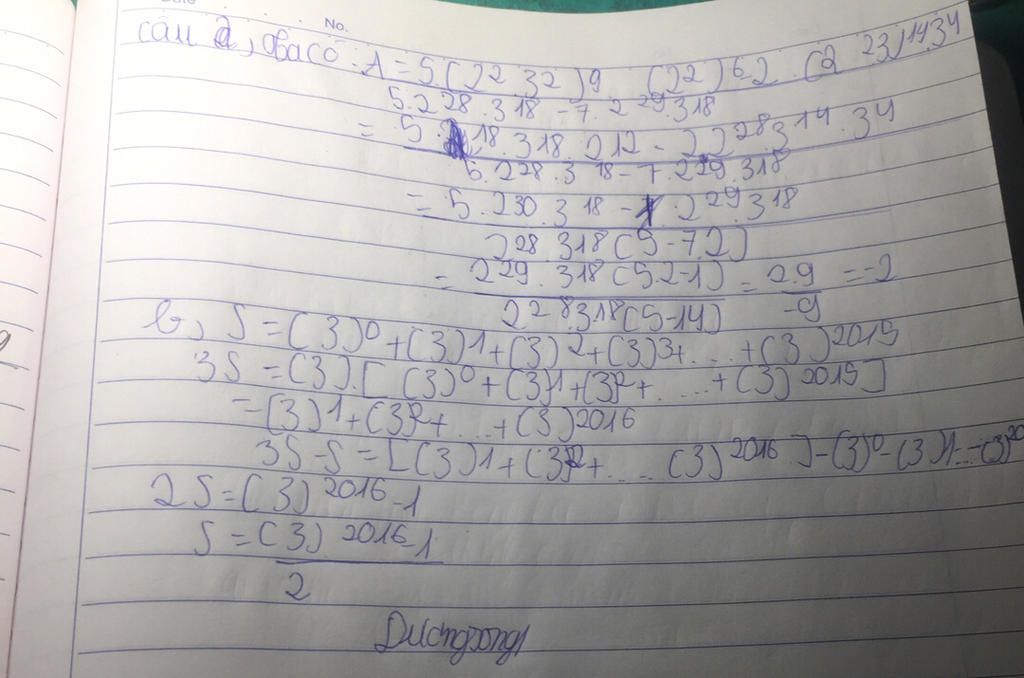 No.
câu a, ta có: A = 5(22 32)9 (22)6.2 (2 23)14.34
5.228.318 - 7.229.318
= 5. 18.318.212 - 2.228.314.34
5.228.318 - 7.229.318
= 5.230.318 - 1.229.318
228.318(5-7.2)
= 229.318(5.2-1) = 2.9 = -2
228.318(5-14) -9
b, S = (3)0+(3)1+(3)2+(3)3+...+(3)2015
3S = (3).[(3)0+(3)1+(3)2+....+(3)2015]
=(3)1+(3)2+...+(3)2016
3S-S=[(3)1+(3)2+....(3)2016]-(3)0-(3)1...-(3)20
2S=(3)2016-1
S=(3)2016-1
2